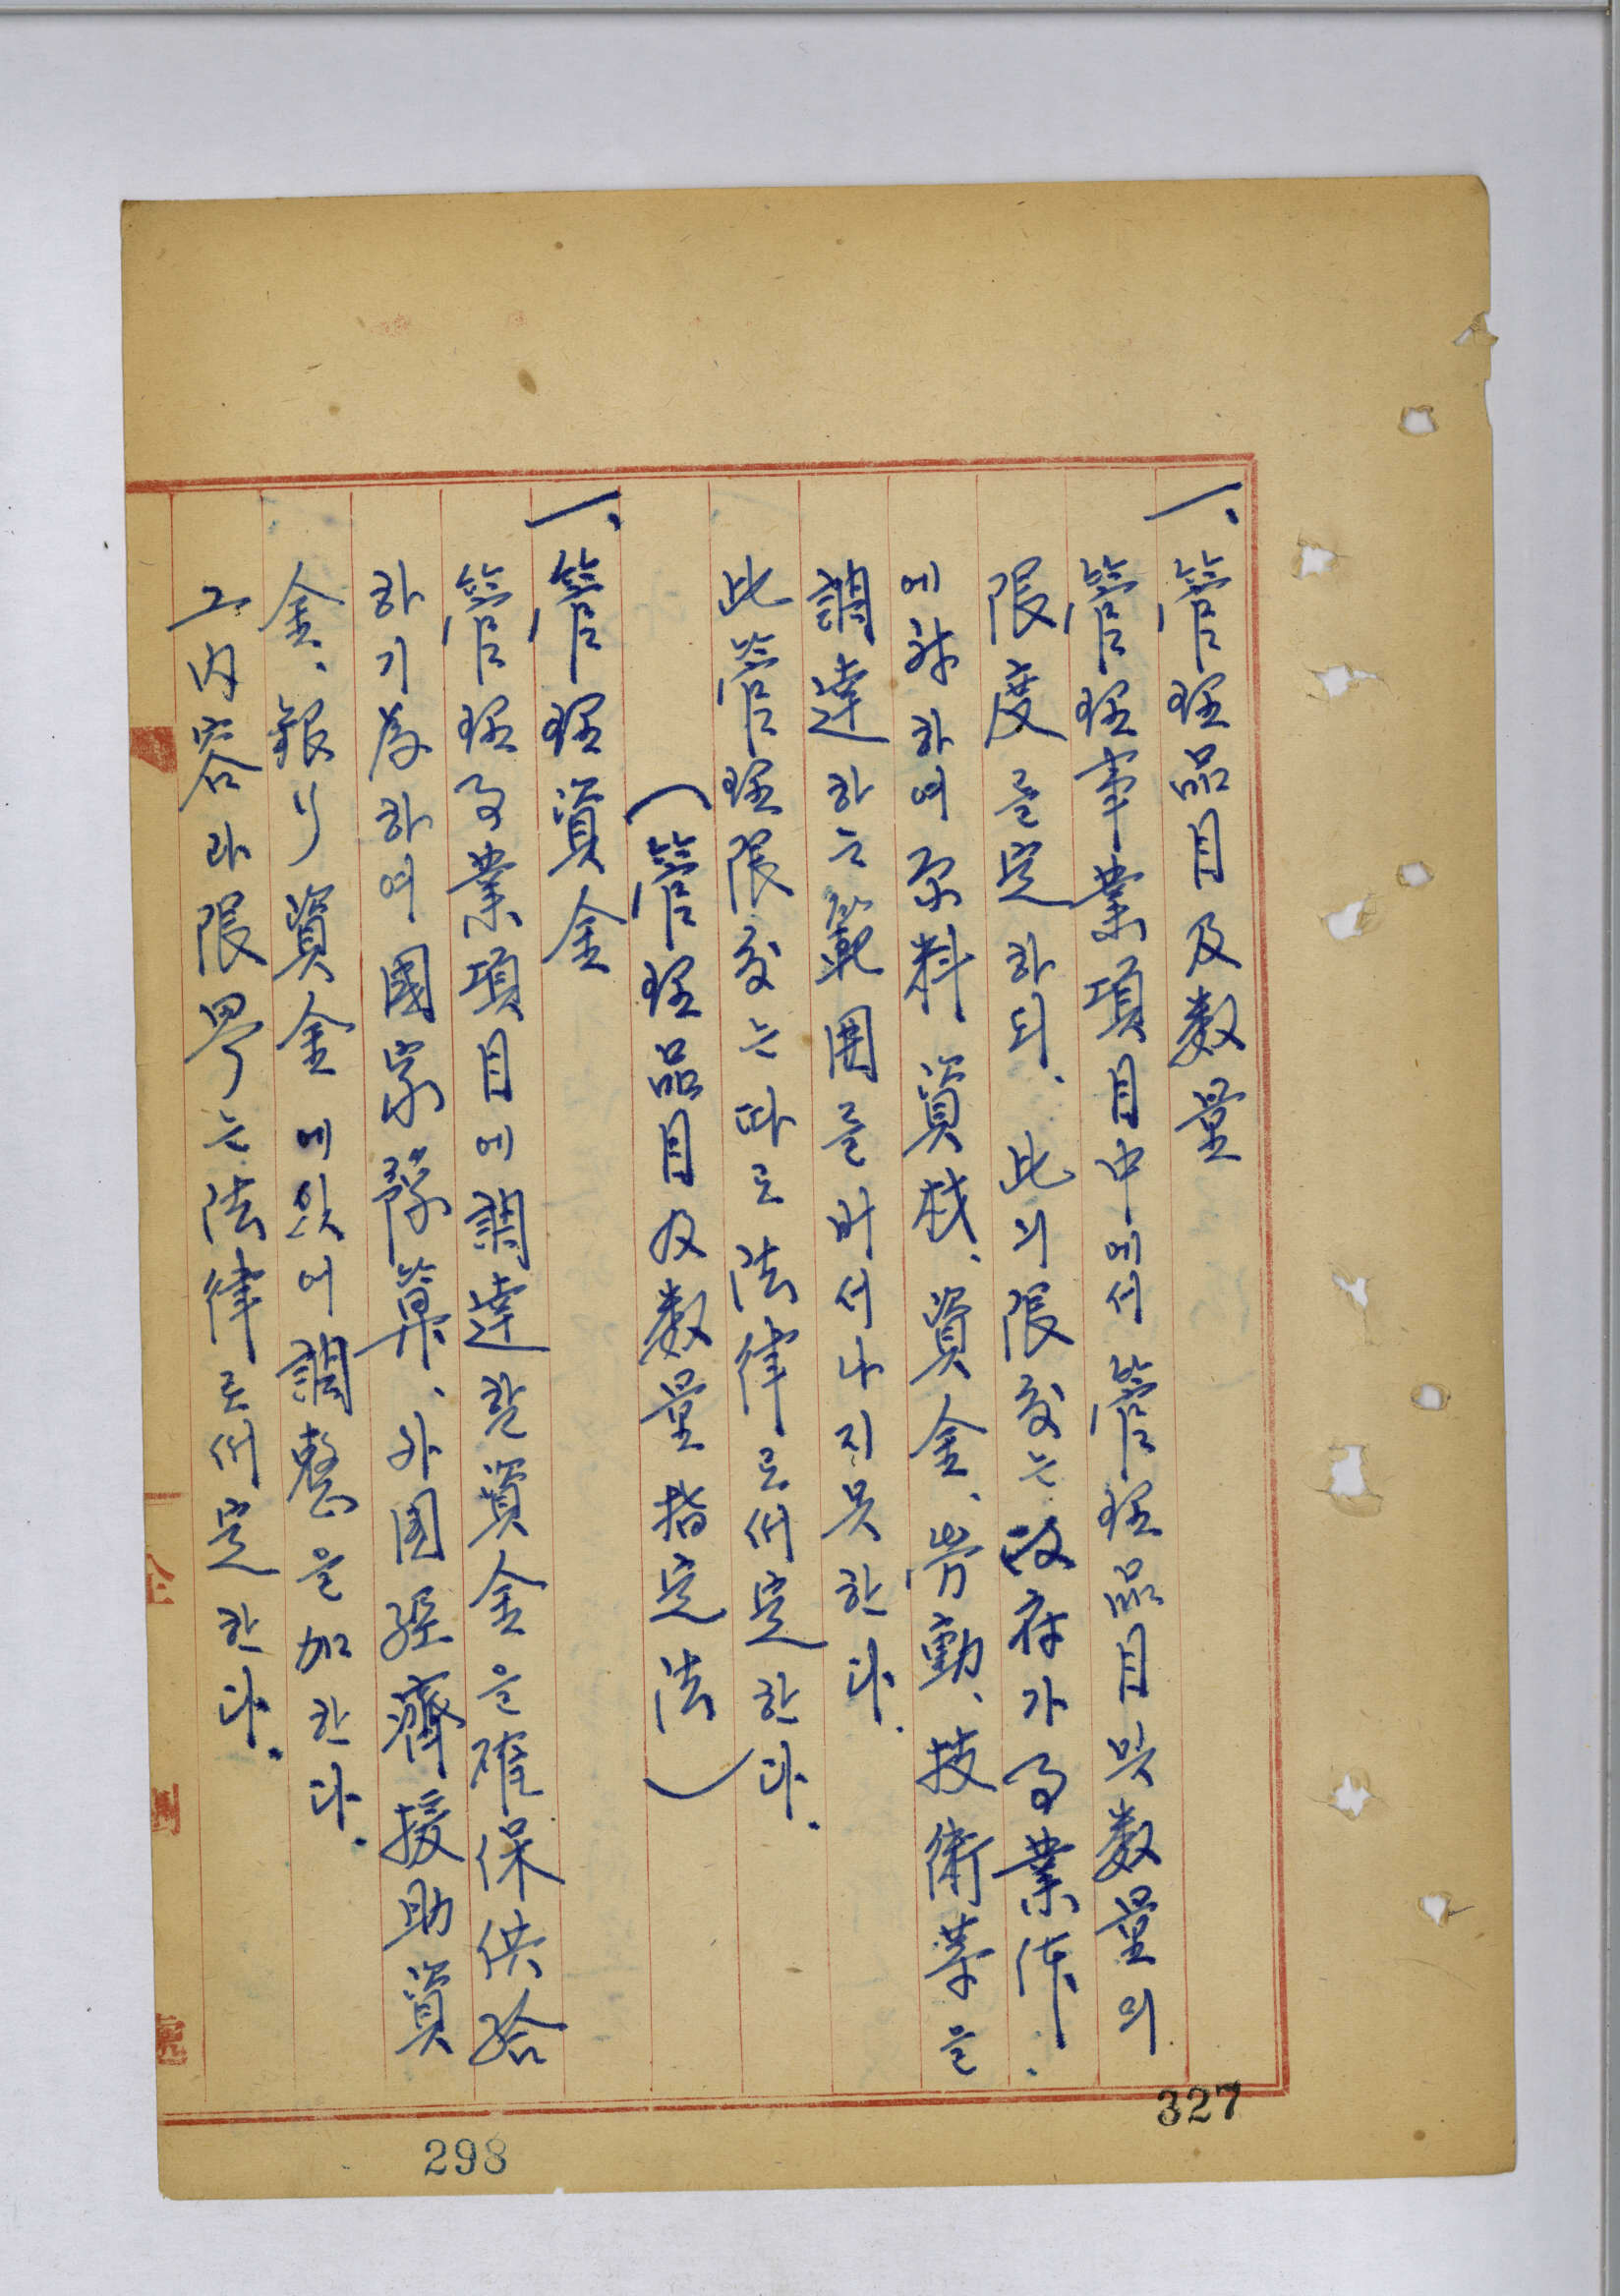 一、管理品目及数量
管理事業項目中에서 管理品目 및 数量의
限度를 定하되、此의 限度는 政府가 事業体
에 対하여 原料 資材、資金、労動、技術等을
調達하는 範囲를 버서나지 못한다.
此 管理限度는 따로 法律로써 定한다.
(管理品目及数量指定法)
一、管理資金
管理事業項目에 調達할 資金을 確保供給
하기 為하여 國家予算、外国経済援助資
金、銀行資金에 있어 調整을 加한다.
그 内容과 限界는 法律로써 定한다.
327
298